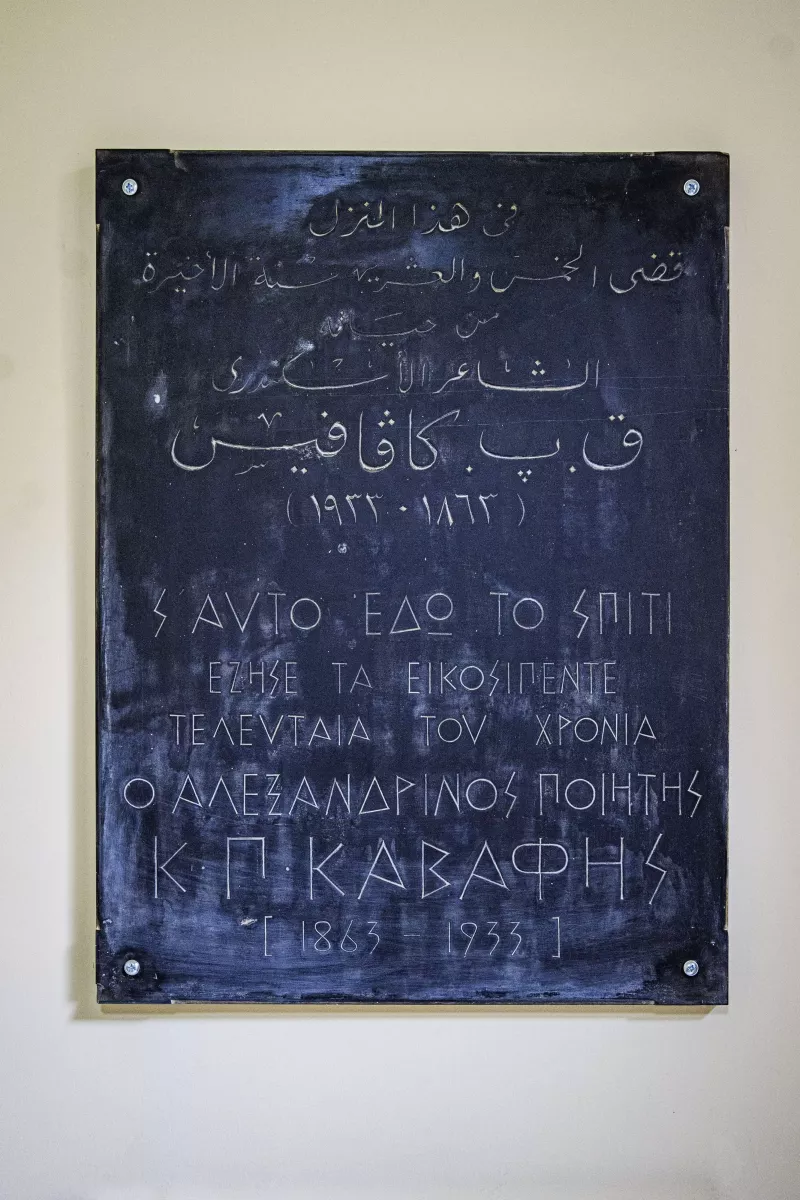 فى هذا المنزل
قضى الخمس والعشرين سنة الأخيرة
من حياته
الشاعر الأسكندرى
ق. پ. كاڤافيس
(١٨٦٣ - ١٩٣٣)
Σ' ΑΥΤΟ ΕΔΩ ΤΟ ΣΠΙΤΙ
ΕΖΗΣΕ ΤΑ ΕΙΚΟΣΙΠΕΝΤΕ
ΤΕΛΕΥΤΑΙΑ ΤΟΥ ΧΡΟΝΙΑ
Ο ΑΛΕΞΑΝΔΡΙΝΟΣ ΠΟΙΗΤΗΣ
Κ · Π · ΚΑΒΑΦΗΣ
[ 1863 – 1933 ]